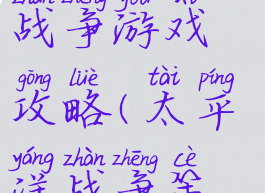 zhàn zhēng yóu xì
战争游戏
gōng lüè tài píng
攻略(太平
yáng zhàn zhēng cè
洋战争策